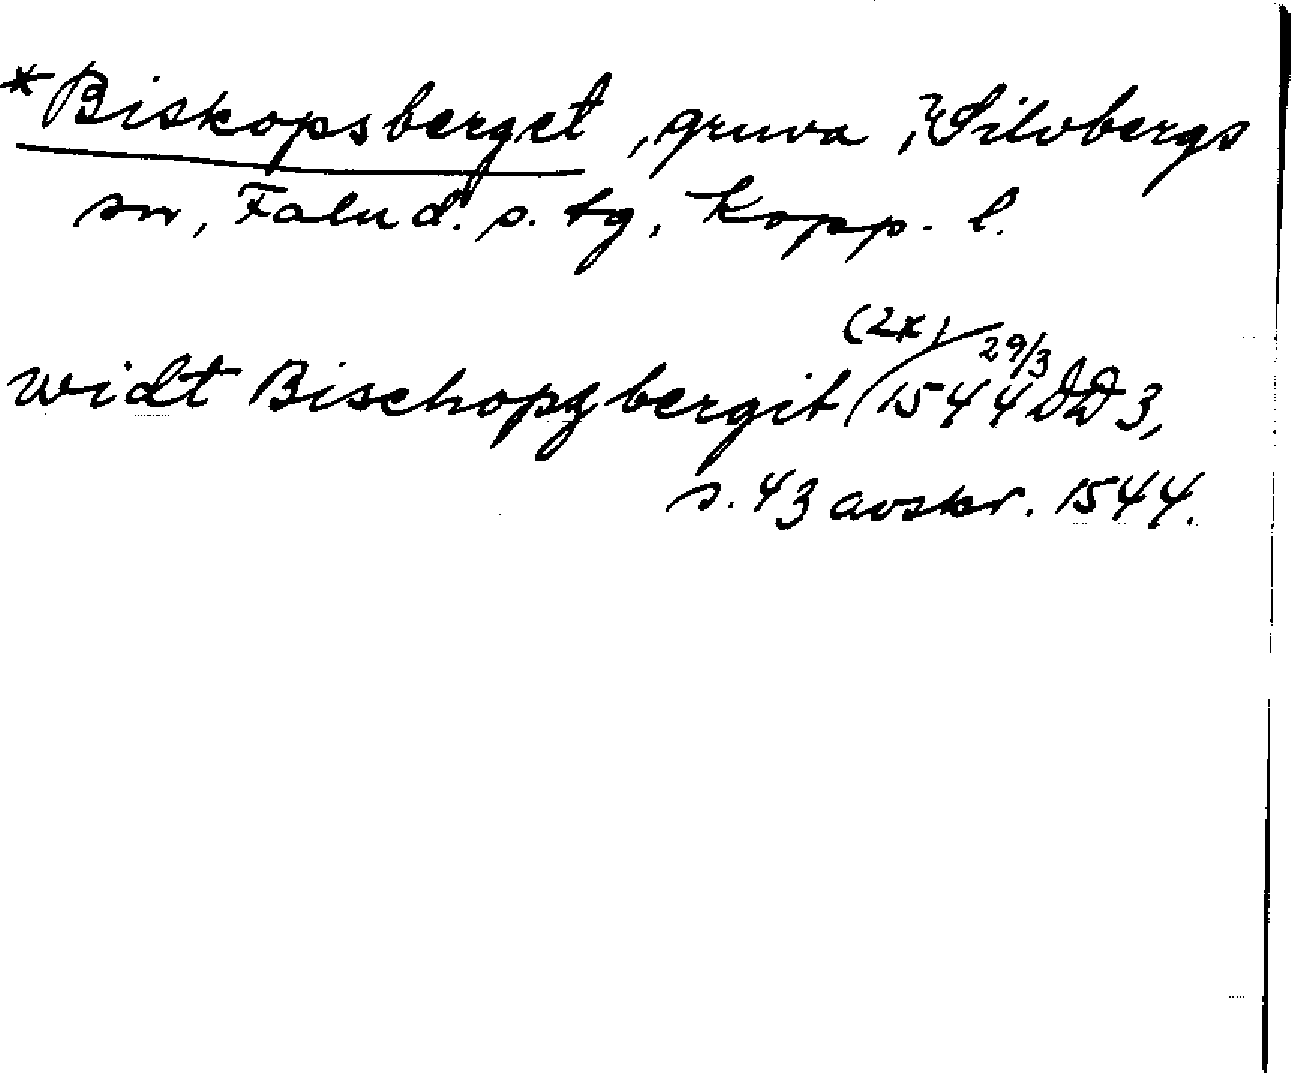 *Biskopsberget, gruva, ?Silvbergs
sn, Falu d. s. tg, Kopp. l.
(2x) 29/3
widt Bischopzbergit 1544 DD 3,
s. 43 avskr. 1544.